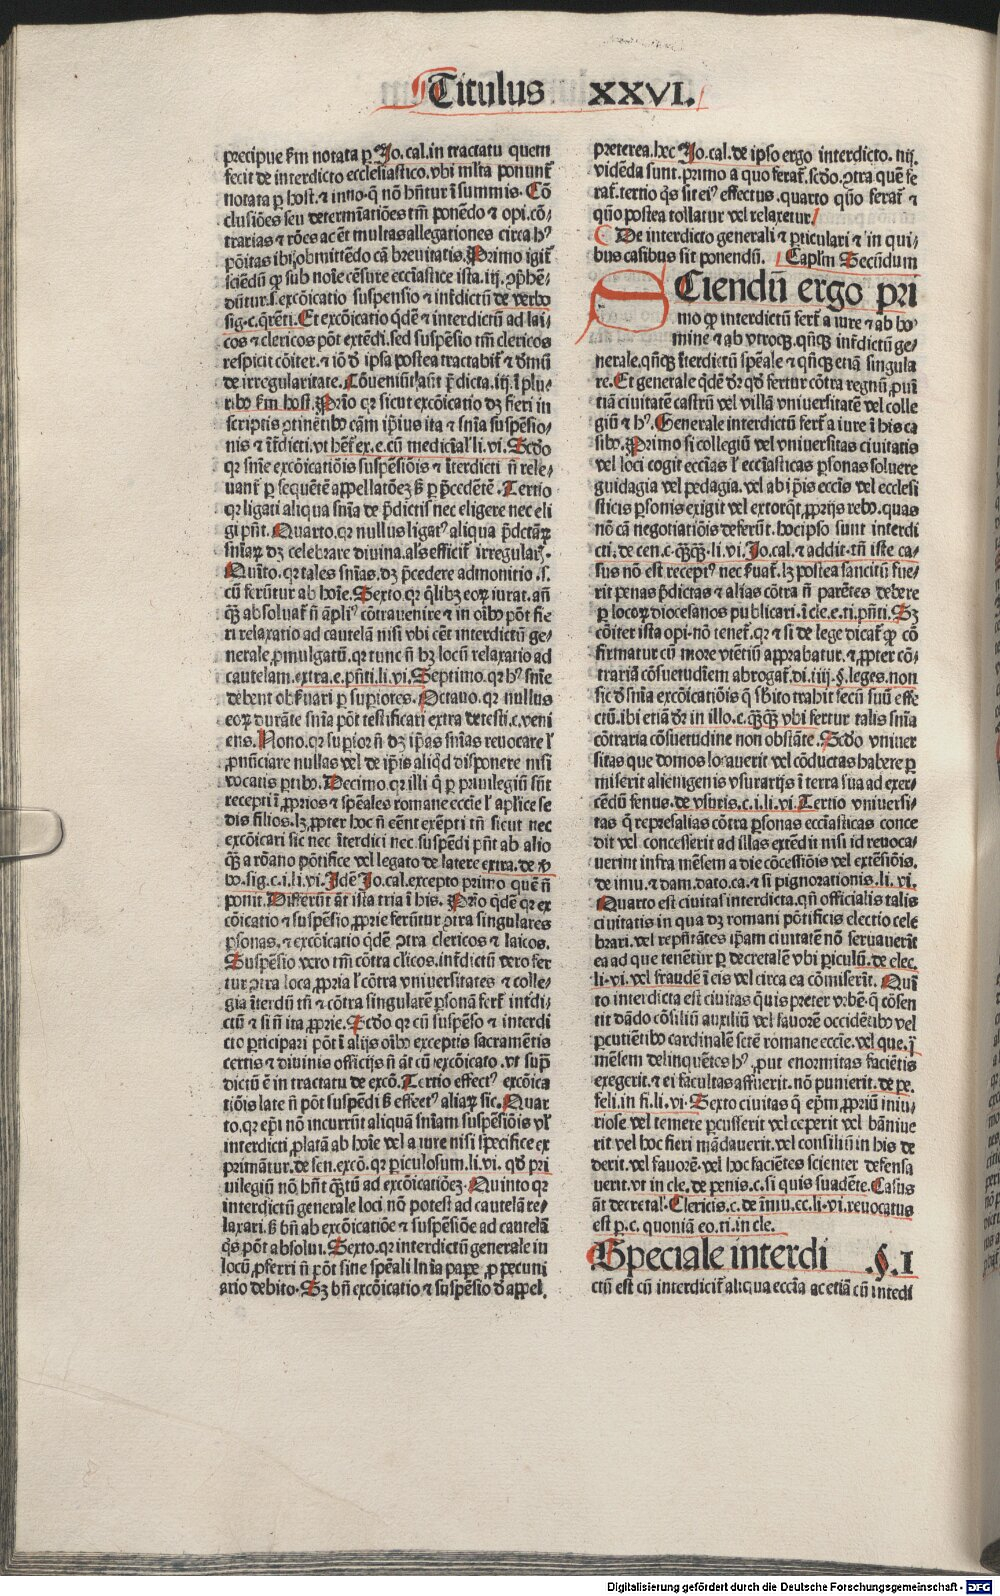 Titulus XXVI.
precipue ẜm notata ꝑ Jo. cal. in tractatu quem
fecit de interdicto ecclesiastico. vbi ml̃ta ponunt̃
notata ꝑ host. ⁊ inno. q̃ nõ hñtur ĩ summis. Cõ
clusiões seu determĩatiões tm̃ ponẽdo ⁊ opi. cõ⸗
trarias ⁊ rões ac et̃ multas allegationes circa hꝰ
põitas ibi; obmittẽdo cã breuitatis. Primo igit̃
sciẽdũ ꝙ sub noĩe cẽsure ecc̃iastice ista .iij. ꝯp̃hẽ⸗
dũtur .s. excõicatio suspensio ⁊ int̃dictũ de verbo
sig. c. q̃rẽti. Et excõicatio qdẽ ⁊ interdictũ ad lai⸗
cos ⁊ clericos põt extẽdi. sed suspẽsio tm̃ clericos
respicit cõiter. ⁊ iõ d̃ ipsa postea tractabit̃ ⁊ d̃mũ
de irregularitate. Cõueniũt aũt p̃dicta .iij. ĩ plu⸗
ribꝰ ẜm host. Prio qꝛ sicut excõicatio dꝫ fieri in
scriptis ꝯtinẽtibꝰ cãm ip̃ius ita ⁊ snĩa suspẽsio⸗
nis ⁊ ĩt̃dicti. vt hẽt̃ ex. e. cũ medicĩal̃ li. vi. Scd̃o
qꝛ snĩe excõicatiõis suspẽsiõis ⁊ ĩterdicti ñ rele⸗
uant̃ ꝑ sequẽtẽ appellatõeꝫ ẜ ꝑ p̃cedẽtẽ. Tertio
qꝛ ligati aliqua snĩa de p̃dictis nec eligere nec eli
gi pñt. Quarto. qꝛ nullus ligatꝰ aliqua p̃dctãꝝ
snĩaꝝ dꝫ celebrare diuina. als̃ efficit̃ irregular̃.
Quĩto. qꝛ tales snĩas. dꝫ p̃cedere admonitio .s.
cũ ferũtur ab hoĩe. Sexto. qꝛ qlibꝫ eoꝝ iurat. añ
q̃ꝫ absoluat̃ ñ ãpliꝰ cõtrauenire ⁊ in oĩbꝰ põt fie
ri relaxatio ad cautelã nisi vbi cẽt interdictũ ge⸗
nerale ꝓmulgatũ. qꝛ tunc ñ hꝫ locũ relaxatio ad
cautelam. extra. e. pñti. li. vi. Septimo. qꝛ hꝰ snĩe
debent obẜuari ꝑ supiores. Octauo. qꝛ nullus
eoꝝ durãte snĩa põt testificari extra de testi. c. veni
ens. Nono. qꝛ supior ñ dꝫ ip̃as snĩas reuocare l̃
ꝓnũciare nullas vel de ip̃is aliqd disponere nisi
vocatis ꝑtibꝰ. Decimo. qꝛ illi q̃ ꝑ priuilegiũ sũt
recepti ĩ ꝓprios ⁊ spẽales romane ecc̃ie l̃ aplice se
dis filios. lꝫ ꝓpter hoc ñ eẽnt exẽpti tñ sicut nec
excõicari sic nec ĩterdici nec suspẽdi pñt ab alio
q̃ꝫ a rõano põtifice vel legato de latere extra. de v̾
bo. sig. c. i. li. vi. Idẽ Jo. cal. excepto primo quẽ ñ
ponit. Differũt ãt ista tria ĩ his. Prio qdẽ qꝛ ex
cõicatio ⁊ suspẽsio ꝓprie ferũtur ꝯtra singulares
ꝑsonas. ⁊ excõicatio qdẽ ꝯtra clericos ⁊ laicos.
Suspẽsio vero tm̃ cõtra clicos. int̃dictũ vero fer
tur ꝯtra loca ꝓpria l̃ cõtra vniuersitates ⁊ colle⸗
gia ĩterdũ tñ ⁊ cõtra singularẽ ꝑsonã fert̃ int̃di⸗
ctũ ⁊ si ñ ita ꝓprie. Scd̃o qꝛ cũ suspẽso ⁊ interdi
cto ꝑticipari põt ĩ alijs oĩbꝰ exceptis sacramẽtis
certis ⁊ diuinis officijs ñ ãt cũ excõicato. vt sup̃
dictũ ẽ in tractatu de excõ. Tertio effectꝰ excõica
tiõis late ñ põt suspẽdi ẜ effectꝰ aliaꝝ sic. Quar
to. qꝛ epĩ nõ incurrũt aliquã snĩam suspẽsiõis vl̃
interdicti ꝓlatã ab hoĩe vel a iure nisi specifice ex
primãtur. de sen. excõ. qꝛ ꝑiculosum. li. vi. qd̃ pri
uilegiũ nõ hñt q̃ꝫtũ ad excõicatiõeꝫ. Quinto qꝛ
interdictũ generale loci nõ potest ad cautelã re⸗
laxari. ẜ bñ ab excõicatiõe ⁊ suspẽsiõe ad cautelã
q̃s põt absolui. Sexto. qꝛ interdictũ generale in
locũ ꝓferri ñ põt sine spẽali lñĩa pape ꝓ pecuni
ario debito. Sꝫ bñ excõicatio ⁊ suspẽsio d̃ appel.
preterea. hec Jo. cal. de ipso ergo interdicto. iiij.
vidẽda sunt. primo a quo ferat̃. scd̃o. ꝯtra quẽ fe
rat̃. tertio q̃s sit eiꝰ effectus. quarto qño ferat̃ ⁊
qño postea tollatur vel relaxetur.
De interdicto generali ⁊ ꝑticulari ⁊ in qui⸗
bus casibus sit ponendũ. Caplm̃ Secũdum
SCiendũ ergo pri
mo ꝙ interdictũ fert̃ a iure ⁊ ab ho⸗
mine ⁊ ab vtroqꝫ. qñqꝫ int̃dictũ ge⸗
nerale. qñqꝫ ĩterdictũ spẽale ⁊ qñqꝫ etiã singula
re. Et generale qdẽ dr̃ qd̃ fertur cõtra regnũ ꝓuĩ
tiã ciuitatẽ castrũ vel villã vniuersitatẽ vel colle
giũ ⁊ hꝰ. Generale interdictũ fert̃ a iure ĩ his ca
sibꝰ. Primo si collegiũ vel vniuersitas ciuitatis
vel loci cogit ecc̃ias l̃ ecc̃iasticas ꝑsonas soluere
guidagia vel pedagia. vel ab ip̃is ecc̃is vel ecclesi
sticis ꝑsonis exigit vel extorq̃t ꝓprijs rebꝰ. quas
nõ cã negotiatiõis deferũt. hoc ipso sunt interdi
cti. de cen. c. q̃ꝫq̃ꝫ. li. vi. Jo. cal. ⁊ addit. tñ iste ca⸗
sus nõ est receptꝰ nec ẜuat̃. lꝫ postea sancitũ fue⸗
rit penas p̃dictas ⁊ alias cõtra ñ parẽtes debere
ꝑ locoꝝ diocesanos publicari. ĩ cle. e. ti. pñti. Sꝫ
cõiter ista opi. nõ tenet̃. qꝛ ⁊ si de lege dicat̃ ꝙ cõ
firmatur cũ more vtẽtiũ approbatur. ⁊ ꝓpter cõ⸗
trariã cõsuetudĩem abrogat̃. di. iiij. §. leges. non
sic d̃ snĩa excõicatiõis q̃ sb̃ito trahit secũ suũ effe
ctũ. ibi etiã dr̃ in illo. c. q̃ꝫq̃ꝫ vbi fertur talis snĩa
cõtraria cõsuetudine non obstãte. Scd̃o vniuer
sitas que domos locauerit vel cõductas habere ꝑ
miserit alienigenis vsurarijs ĩ terra sua ad exer⸗
cẽdũ fenus. de vsuris. c. i. li. vi. Tertio vniuersi⸗
tas q̃ represalias cõtra ꝑsonas ecc̃iasticas conce
dit vel concesserit ad illas extẽdit nisi id reuoca⸗
uerint infra mẽsem a die cõcessiõis vel extẽsiõis.
de iniu. ⁊ dam. dato. ca. ⁊ si pignorationis. li. vi.
Quarto est ciuitas interdicta. qñ officialis talis
ciuitatis in qua dꝫ romani põtificis electio cele
brari. vel rep̃ñtãtes ip̃am ciuitatẽ nõ seruauerĩt
ea ad que tenẽtur ꝑ decretalẽ vbi ꝑiculũ. de elec.
li. vi. vel fraudẽ ĩ eis vel circa ea cõmiserĩt. Quĩ
to interdicta est ciuitas q̃uis preter vrbẽ. q̃ cõsen
tit dãdo cõsiliũ auxiliũ vel fauorẽ occidẽtibꝰ vel
ꝑcutiẽtibꝰ cardinalẽ sctẽ romane ecc̃ie. vel que. ĩ
mẽsem delinquẽtes hꝰ ꝓut enormitas faciẽtis
exegerit. ⁊ ei facultas affuerit. nõ punierit. de pe.
feli. in fi. li. vi. Sexto ciuitas q̃ ep̃m ꝓpriũ iniu⸗
riose vel temere ꝑcusserit vel ceperit vel bãniue
rit vel hoc fieri mãdauerit. vel consiliũ in his de
derit. vel fauorẽ. vel hoc faciẽtes scienter defensa
uerit. vt in cle. de penis. c. si quis suadẽte. Casus
ãt decretal̃. Clericis. c. de ĩmu. ecc. li. vi. reuocatus
est ꝑ. c. quoniã eo. ti. in cle.
Speciale interdi .§. I
ctũ est cũ interdicit̃ aliqua ecc̃ia ac etiã cũ intedi
Digitalisierung gefördert durch die Deutsche Forschungsgemeinschaft - DFG